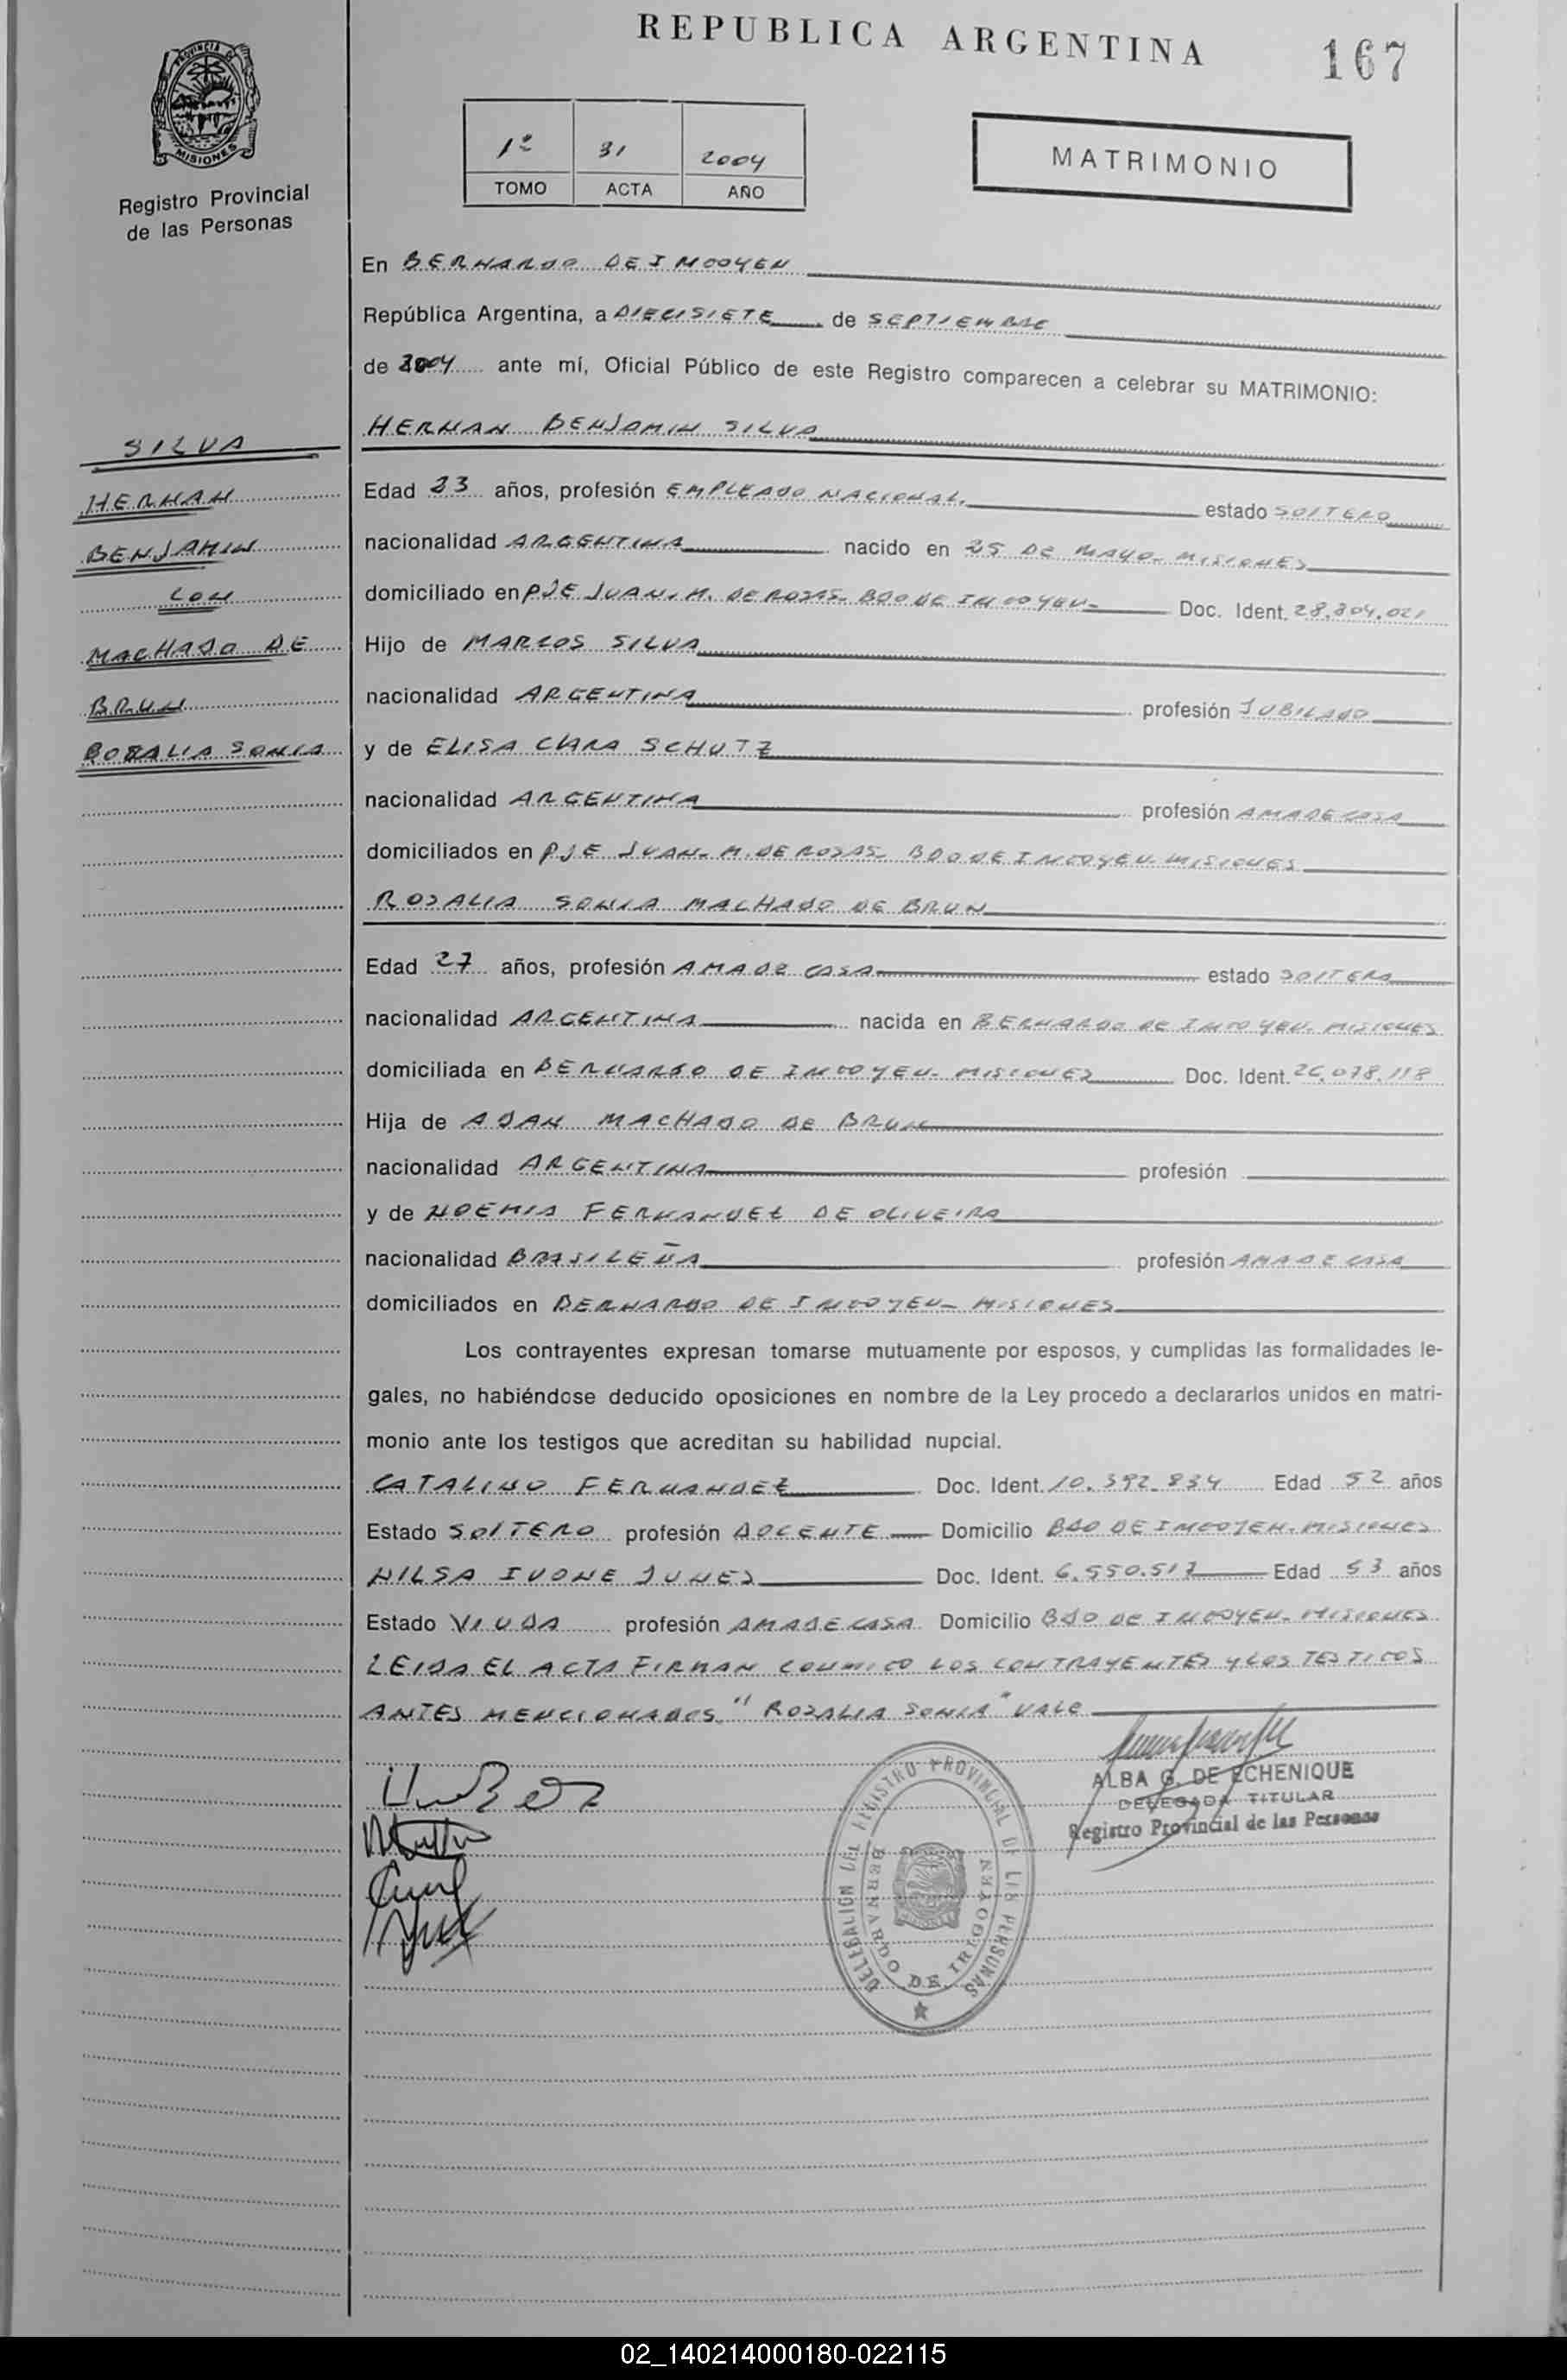 REPUBLICA ARGENTINA
167
PROVINCIA DE
MISIONES
Registro Provincial
de las Personas
1º 31 2004
TOMO ACTA AÑO
MATRIMONIO
En BERNARDO DE IRIGOYEN
República Argentina, a DIECISIETE de SEPTIEMBRE
de 2004 ante mí, Oficial Público de este Registro comparecen a celebrar su MATRIMONIO:
SILVA
HERNAN
BENJAMIN
CON
MACHADO DE
BRUN
ROSALIA SONIA
HERNAN BENJAMIN SILVA
Edad 23 años, profesión EMPLEADO NACIONAL. estado SOLTERO
nacionalidad ARGENTINA nacido en 25 DE MAYO- MISIONES
domiciliado en PJE JUAN. M. DE ROSAS- BDO DE IRIGOYEN- Doc. Ident. 28.804.021
Hijo de MARCOS SILVA
nacionalidad ARGENTINA profesión JUBILADO
y de ELISA CLARA SCHUTZ
nacionalidad ARGENTINA profesión AMA DE CASA
domiciliados en PJE JUAN- M. DE ROSAS- BDO DE IRIGOYEN- MISIONES
ROSALIA SONIA MACHADO DE BRUN
Edad 27 años, profesión AMA DE CASA estado SOLTERA
nacionalidad ARGENTINA nacida en BERNARDO DE IRIGOYEN. MISIONES
domiciliada en BERNARDO DE IRIGOYEN- MISIONES Doc. Ident. 26.078.118
Hija de ADAN MACHADO DE BRUN
nacionalidad ARGENTINA profesión
y de NOEMIA FERNANDEZ DE OLIVEIRA
nacionalidad BRASILEÑA profesión AMA DE CASA
domiciliados en BERNARDO DE IRIGOYEN- MISIONES
Los contrayentes expresan tomarse mutuamente por esposos, y cumplidas las formalidades le-
gales, no habiéndose deducido oposiciones en nombre de la Ley procedo a declararlos unidos en matri-
monio ante los testigos que acreditan su habilidad nupcial.
CATALINO FERNANDEZ Doc. Ident. 10.392.834 Edad 52 años
Estado SOLTERO profesión DOCENTE Domicilio BDO DE IRIGOYEN. MISIONES
NILSA IVONE JUNES Doc. Ident. 6.550.517 Edad 53 años
Estado VIUDA profesión AMA DE CASA Domicilio BDO DE IRIGOYEN- MISIONES
LEIDA EL ACTA FIRMAN CONMIGO LOS CONTRAYENTES Y LOS TESTIGOS
ANTES MENCIONADOS. "ROSALIA SONIA" VALE
ALBA G. DE ECHENIQUE
DELEGADA TITULAR
Registro Provincial de las Personas
DELEGACION DEL REGISTRO PROVINCIAL DE LAS PERSONAS
BERNARDO DE IRIGOYEN
02_140214000180-022115